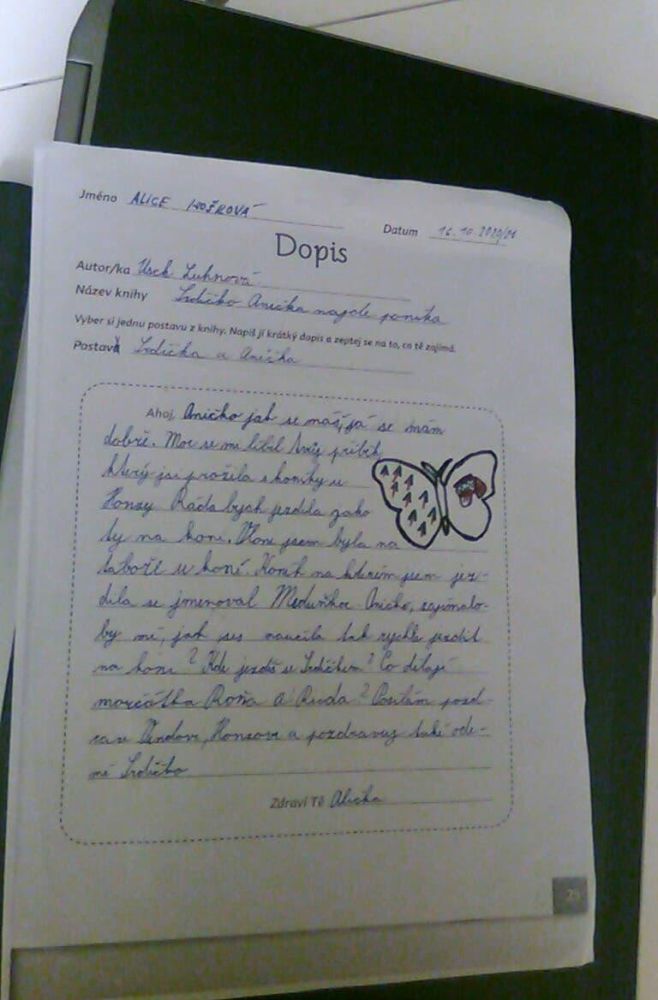 Jméno ALICE
Datum 16.10.2020/21
Dopis
Autor/ka Usch Luhnová
Název knihy Srdíčko Anička najde poníka
Vyber si jednu postavu z knihy. Napiš jí krátký dopis a zeptej se na to, co tě zajímá.
Postava Srdíčka a Anička
Ahoj, Aničko jak se máš, já se mám
dobře. Moc se mi líbil tvůj příběh
který jsi prožila s koníky u
Honzy Ráda bych jezdila jako
ty na koni. Vloni jsem byla na
táboře u koně. Koník na kterém jsem jez-
dila se jmenoval Meduňka. Aničko, zajímalo-
by mě, jak ses naučila tak rychle jezdit
na koni? Kde jezdíš se Srdíčkem? Co dělají
morčátka Roňa a Ruda? Posílám pozd-
rav Honzovi a pozdravuj také ode-
mě Srdíčko
Zdraví Tě Alička
29